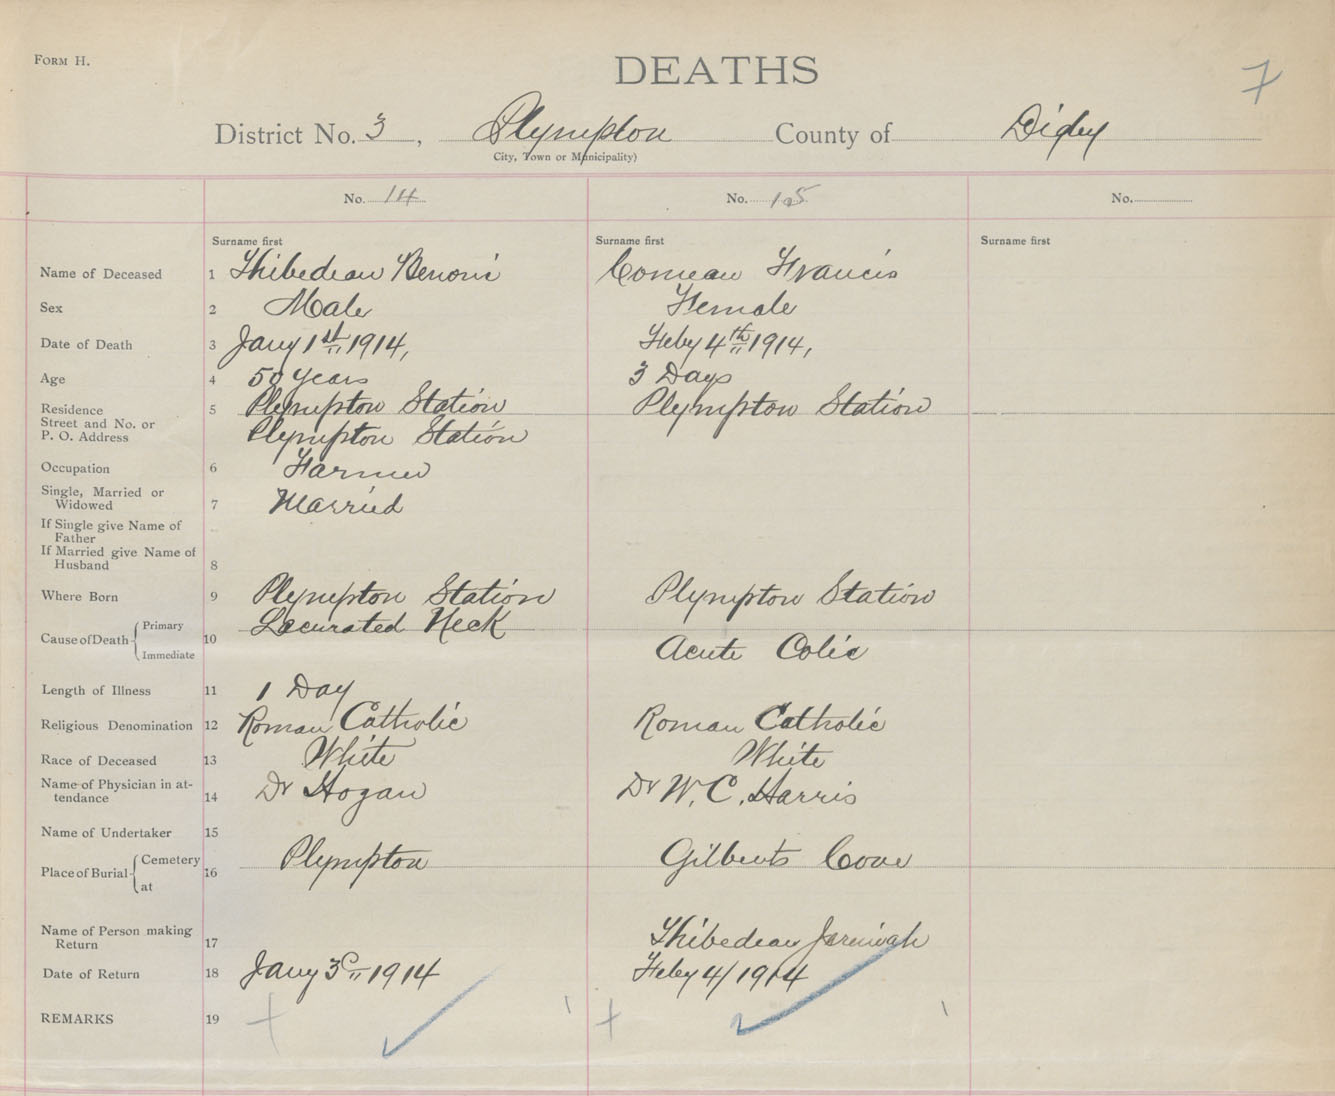 Form H.
DEATHS
7
District No. 3, Plympton County of Digby
City, Town or Municipality)
No. 14 No. 15 No.
Surname first Surname first Surname first
Name of Deceased 1 Thibedeau Benoni Comeau Francis
Sex 2 Male Female
Date of Death 3 Jany 1st 1914, Feby 4th 1914,
Age 4 50 Years 3 Days
Residence 5 Plympton Station Plympton Station
Street and No. or
P. O. Address Plympton Station
Occupation 6 Farmer
Single, Married or
Widowed 7 Married
If Single give Name of
Father
If Married give Name of
Husband 8
Where Born 9 Plympton Station Plympton Station
Cause of Death Primary 10 Lacurated Neck
Immediate Acute Colic
Length of Illness 11 1 Day
Religious Denomination 12 Roman Catholic Roman Catholic
Race of Deceased 13 White White
Name of Physician in at-
tendance 14 Dr Hogan Dr W. C. Harris
Name of Undertaker 15
Place of Burial Cemetery 16 Plympton Gilberts Cove
at
Name of Person making
Return 17 Thibedeau Jeremiah
Date of Return 18 Jany 3d 1914 Feby 4/1914
REMARKS 19